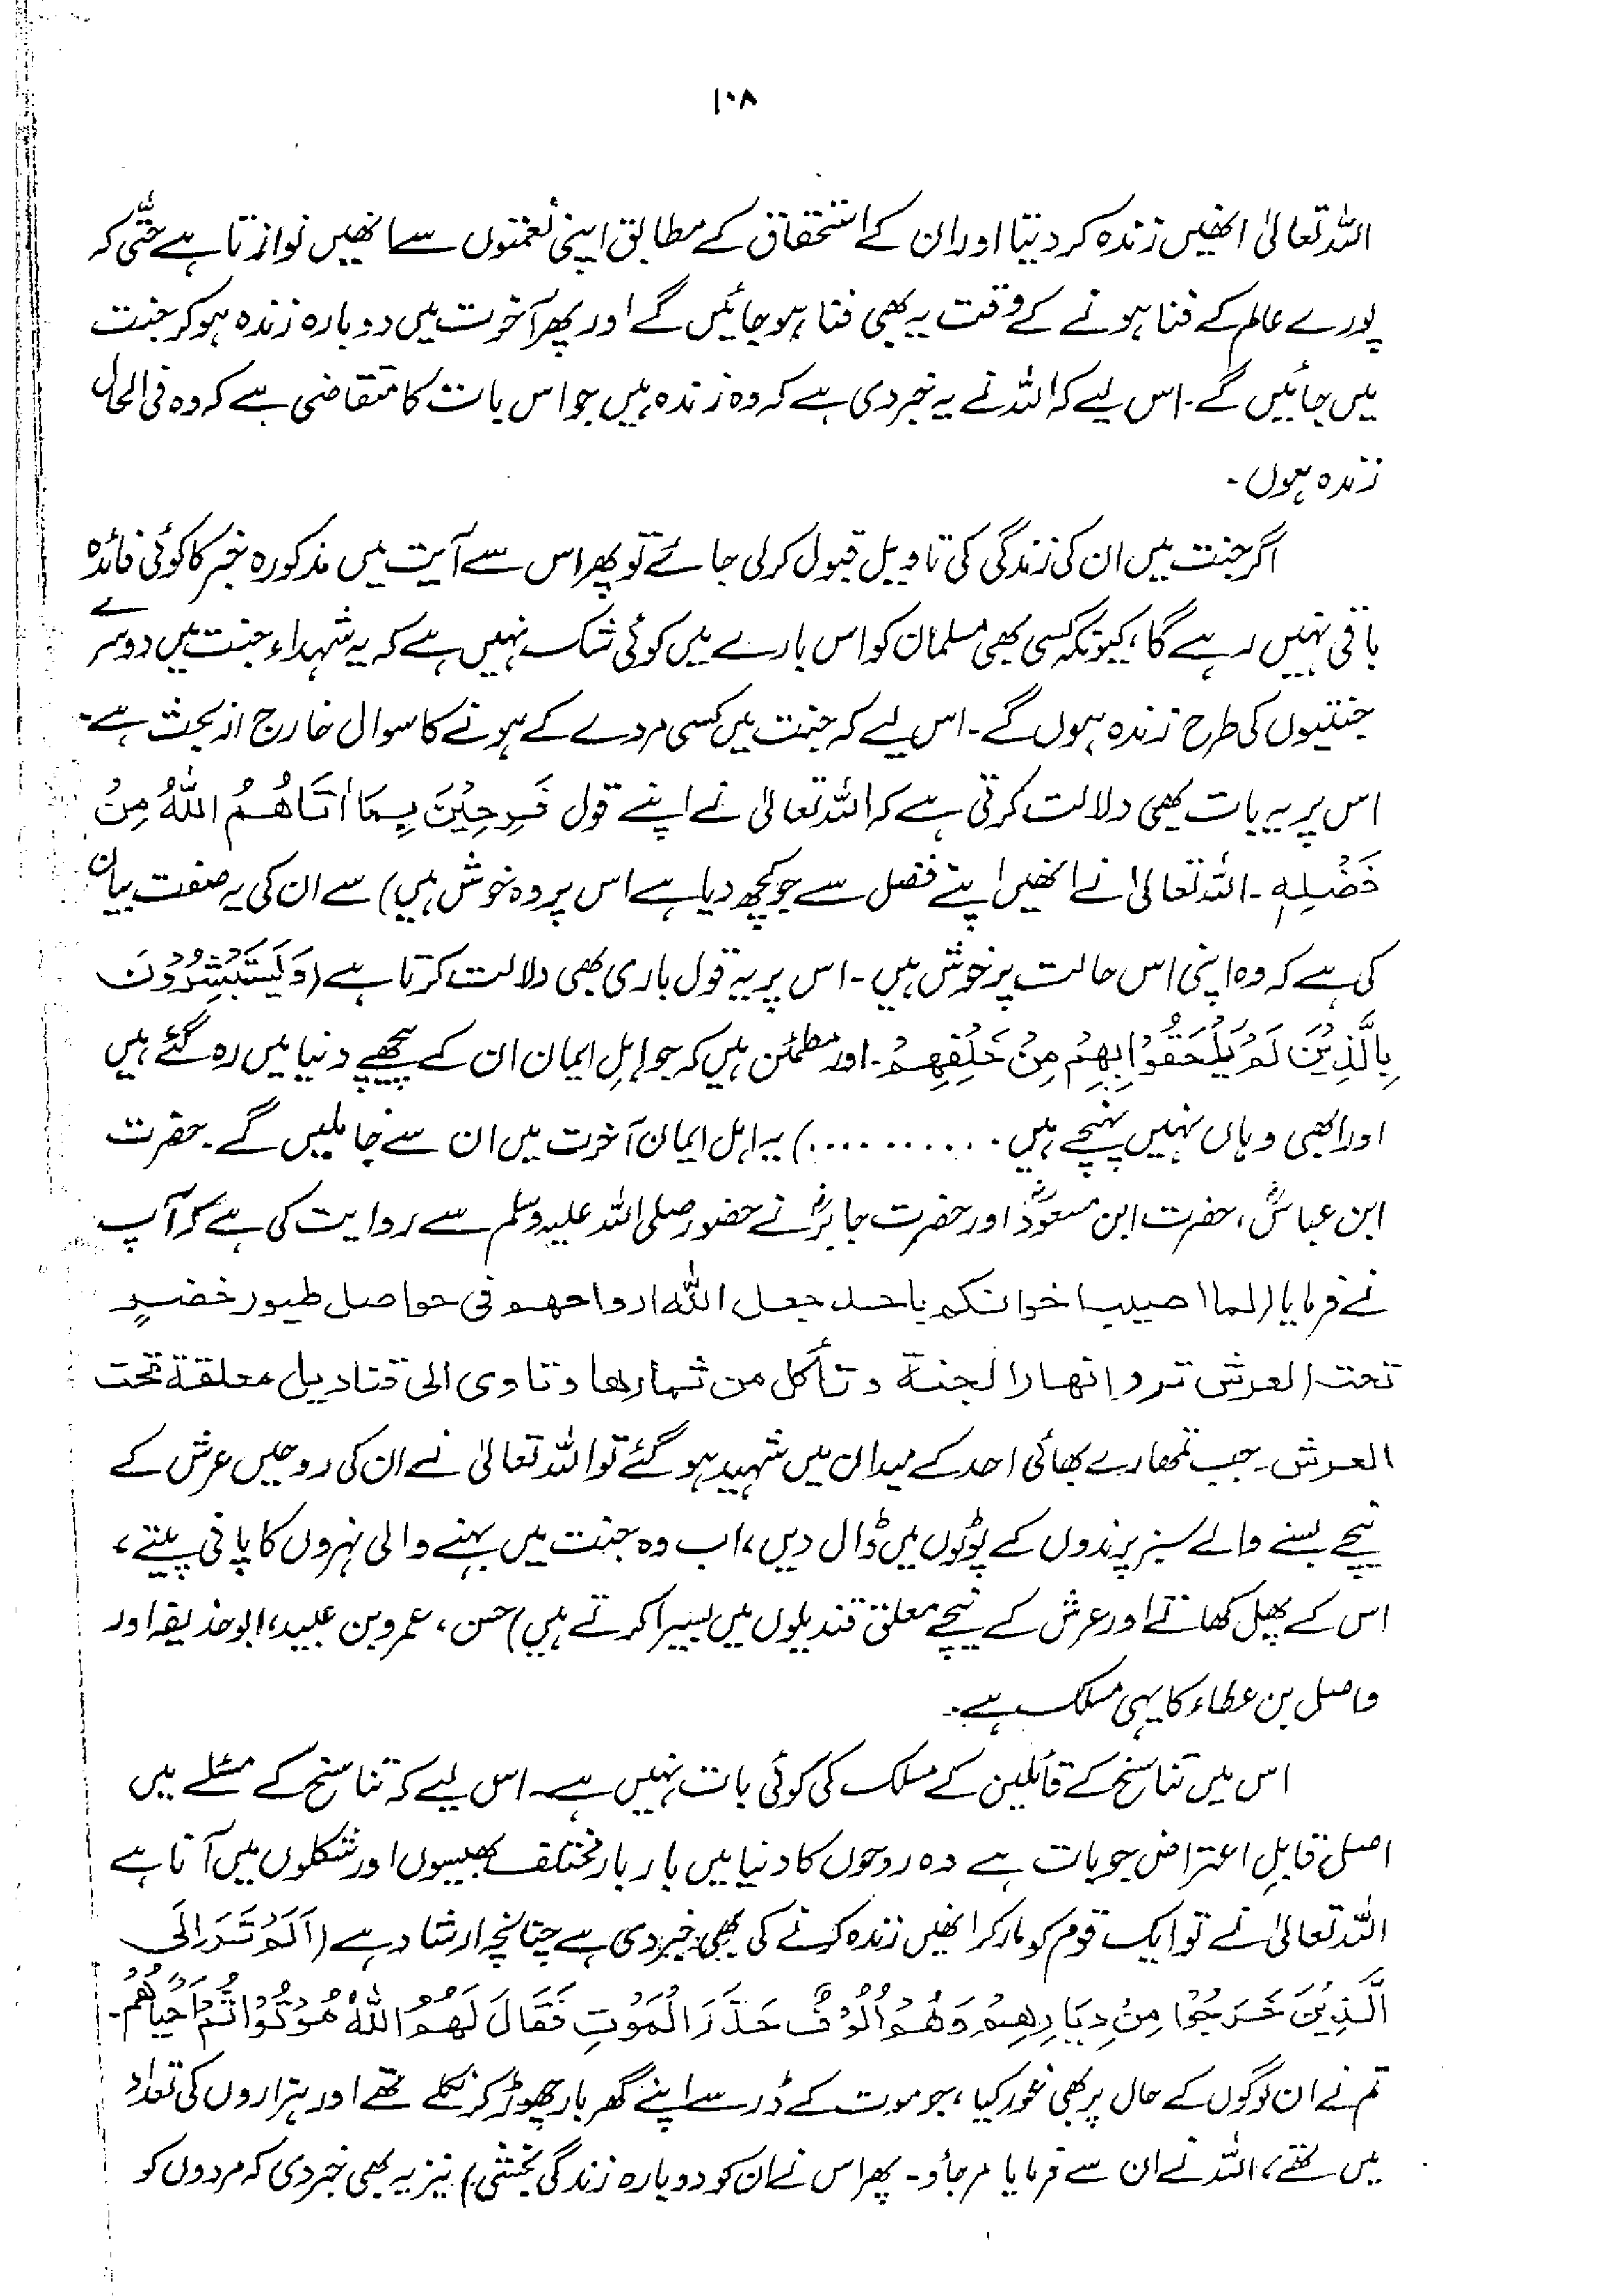 ۱۰۸
اللہ تعالیٰ انھیں زندہ کر دیتا اور ان کے استحقاق کے مطابق اپنی نعمتوں سے انھیں نوازتا ہے حتّٰی کہ
پورے عالم کے فنا ہونے کے وقت یہ بھی فنا ہو جائیں گے اور پھر آخرت میں دوبارہ زندہ ہو کر جنت
میں جائیں گے۔ اس لیے کہ اللہ نے یہ خبر دی ہے کہ وہ زندہ ہیں جو اس بات کا متقاضی ہے کہ وہ فی الحال
زندہ ہوں۔
اگر جنت میں ان کی زندگی کی تاویل قبول کر لی جائے تو پھر اس سے آیت میں مذکورہ خبر کا کوئی فائدہ
باقی نہیں رہے گا، کیونکہ کسی بھی مسلمان کو اس بارے میں کوئی شک نہیں ہے کہ یہ شہداء جنت میں دوسرے
جنتیوں کی طرح زندہ ہوں گے۔ اس لیے کہ جنت میں کسی مردے کے ہونے کا سوال خارج از بحث ہے۔
اس پر یہ بات بھی دلالت کرتی ہے کہ اللہ تعالیٰ نے اپنے قول فَرِحِیْنَ بِمَا اٰتَاھُمُ اللّٰہُ مِنْ
فَضْلِہٖ۔ اللہ تعالیٰ نے انھیں اپنے فضل سے جو کچھ دیا ہے اس پر وہ خوش ہیں) سے ان کی یہ صفت بیان
کی ہے کہ وہ اپنی اس حالت پر خوش ہیں۔ اس پر یہ قول باری بھی دلالت کرتا ہے (وَیَسْتَبْشِرُوْنَ
بِالَّذِیْنَ لَمْ یَلْحَقُوْا بِھِمْ مِنْ خَلْفِھِمْ۔ اور مطمئن ہیں کہ جو اہلِ ایمان ان کے پیچھے دنیا میں رہ گئے ہیں
اور ابھی وہاں نہیں پہنچے ہیں۔ .........) یہ اہل ایمان آخرت میں ان سے جا ملیں گے۔ حضرت
ابن عباسؓ، حضرت ابن مسعودؓ اور حضرت جابرؓ نے حضور صلی اللہ علیہ وسلم سے روایت کی ہے کہ آپ
نے فرمایا (لما اصیب اخوانکم باحد جعل اللہ ارواحھم فی حواصل طیور خضرٍ
تحت العرش ترد انھار الجنة و تأکل من ثمارھا و تاوی الی قنادیل معلقة تحت
العرش۔ جب تمھارے بھائی احد کے میدان میں شہید ہو گئے تو اللہ تعالیٰ نے ان کی روحیں عرش کے
نیچے بسنے والے سبز پرندوں کے پوٹوں میں ڈال دیں، اب وہ جنت میں بہنے والی نہروں کا پانی پیتے،
اس کے پھل کھاتے اور عرش کے نیچے معلق قندیلوں میں بسیرا کرتے ہیں) حسن، عمرو بن عبید، ابو حذیفہ اور
واصل بن عطاء کا یہی مسلک ہے۔
اس میں تناسخ کے قائلین کے مسلک کی کوئی بات نہیں ہے۔ اس لیے کہ تناسخ کے مسئلے میں
اصل قابلِ اعتراض جو بات ہے وہ روحوں کا دنیا میں بار بار مختلف بھیسوں اور شکلوں میں آنا ہے
اللہ تعالیٰ نے تو ایک قوم کو مار کر انھیں زندہ کرنے کی بھی خبر دی ہے چنانچہ ارشاد ہے (اَلَمْ تَرَ اِلَی
الَّذِیْنَ خَرَجُوْا مِنْ دِیَارِھِمْ وَھُمْ اُلُوْفٌ حَذَرَ الْمَوْتِ فَقَالَ لَھُمُ اللّٰہُ مُوْتُوْا ثُمَّ اَحْیَاھُمْ۔
تم نے ان لوگوں کے حال پر بھی غور کیا، جو موت کے ڈر سے اپنے گھر بار چھوڑ کر نکلے تھے اور ہزاروں کی تعداد
میں تھے، اللہ نے ان سے فرمایا مر جاؤ۔ پھر اس نے ان کو دوبارہ زندگی بخشی) نیز یہ بھی خبر دی کہ مردوں کو